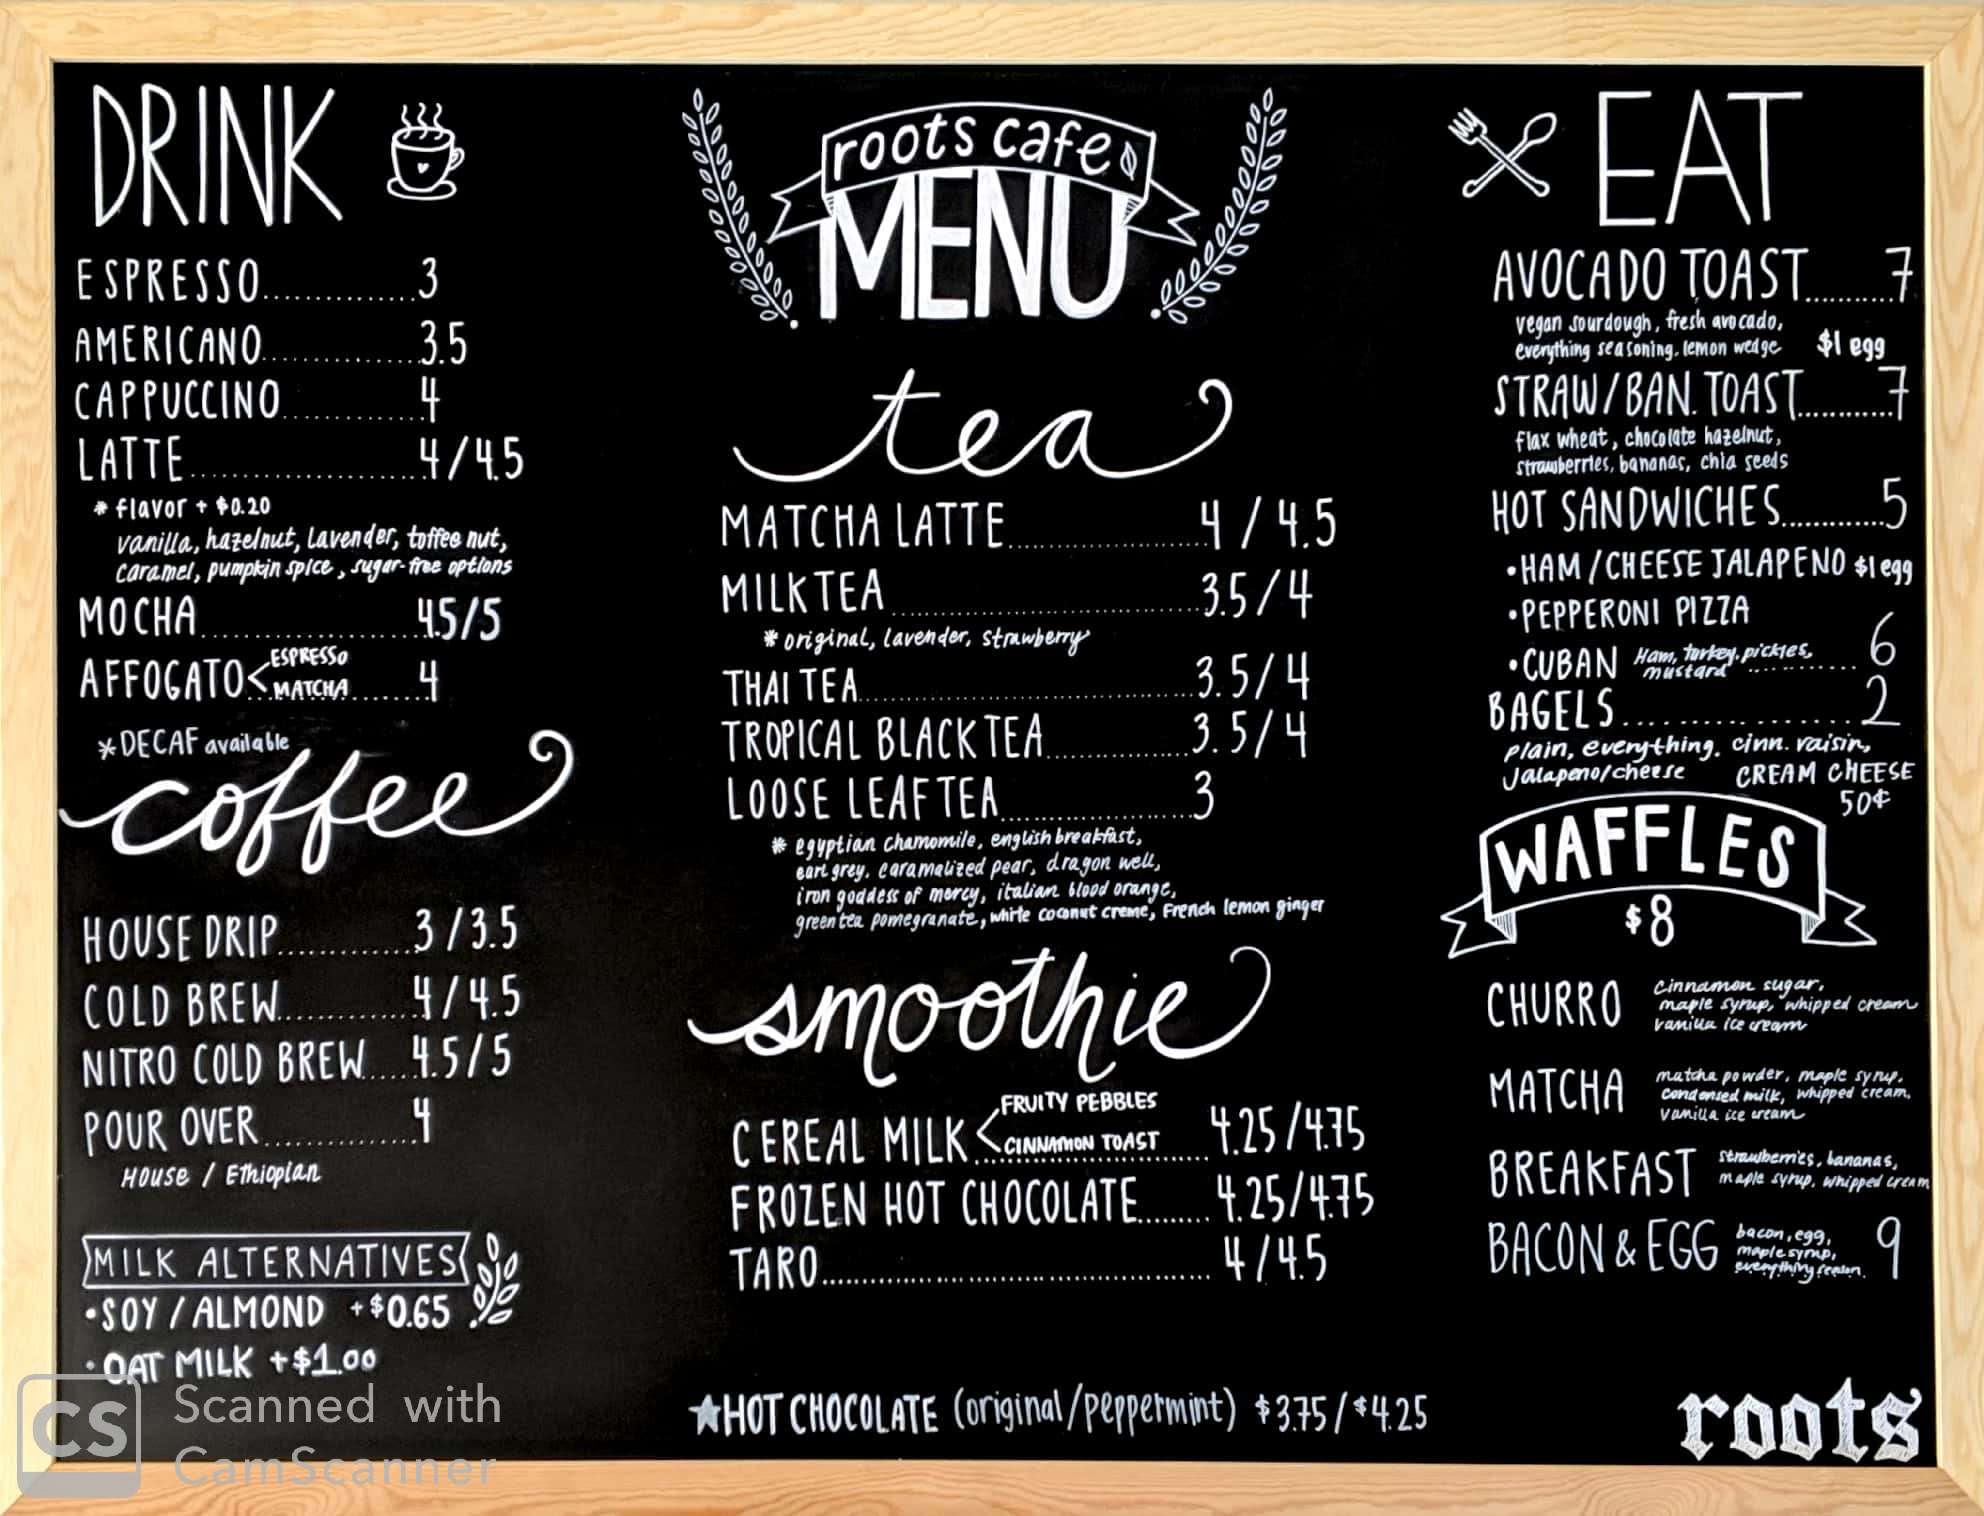 DRINK
ESPRESSO..............3
AMERICANO...............3.5
CAPPUCCINO.............4
LATTE......................4/4.5
* flavor + $0.20
vanilla, hazelnut, lavender, toffee nut,
caramel, pumpkin spice, sugar-free options
MOCHA....................4.5/5
AFFOGATO< ESPRESSO
MATCHA......4
*DECAF available
coffee
HOUSE DRIP.............3/3.5
COLD BREW.............4/4.5
NITRO COLD BREW.....4.5/5
POUR OVER..............4
HOUSE / Ethiopian
MILK ALTERNATIVES
•SOY/ALMOND +$0.65
•OAT MILK +$1.00
roots cafe
MENU
tea
MATCHA LATTE...................4 / 4.5
MILK TEA..............................3.5/4
* original, lavender, strawberry
THAI TEA................................3.5/4
TROPICAL BLACK TEA..............3.5/4
LOOSE LEAF TEA...................3
* egyptian chamomile, english breakfast,
earl grey, caramalized pear, dragon well,
iron goddess of mercy, italian blood orange,
green tea pomegranate, white coconut creme, French lemon ginger
smoothie
CEREAL MILK< FRUITY PEBBLES
CINNAMON TOAST.....4.25/4.75
FROZEN HOT CHOCOLATE........4.25/4.75
TARO.......................................4/4.5
★HOT CHOCOLATE (original/peppermint) $3.75/$4.25
EAT
AVOCADO TOAST..........7
vegan sourdough, fresh avocado,
everything seasoning, lemon wedge $1 egg
STRAW/BAN. TOAST...........7
flax wheat, chocolate hazelnut,
strawberries, bananas, chia seeds
HOT SANDWICHES............5
•HAM/CHEESE JALAPENO $1 egg
•PEPPERONI PIZZA
•CUBAN Ham, turkey, pickles,
mustard ............6
BAGELS..................2
plain, everything, cinn. raisin,
Jalapeno/cheese CREAM CHEESE
50¢
WAFFLES
$8
CHURRO cinnamon sugar,
maple syrup, whipped cream
vanilla ice cream
MATCHA matcha powder, maple syrup,
condensed milk, whipped cream,
vanilla ice cream
BREAKFAST strawberries, bananas,
maple syrup, whipped cream
BACON & EGG bacon, egg,
maple syrup,
everything season. 9
roots
CS Scanned with
CamScanner